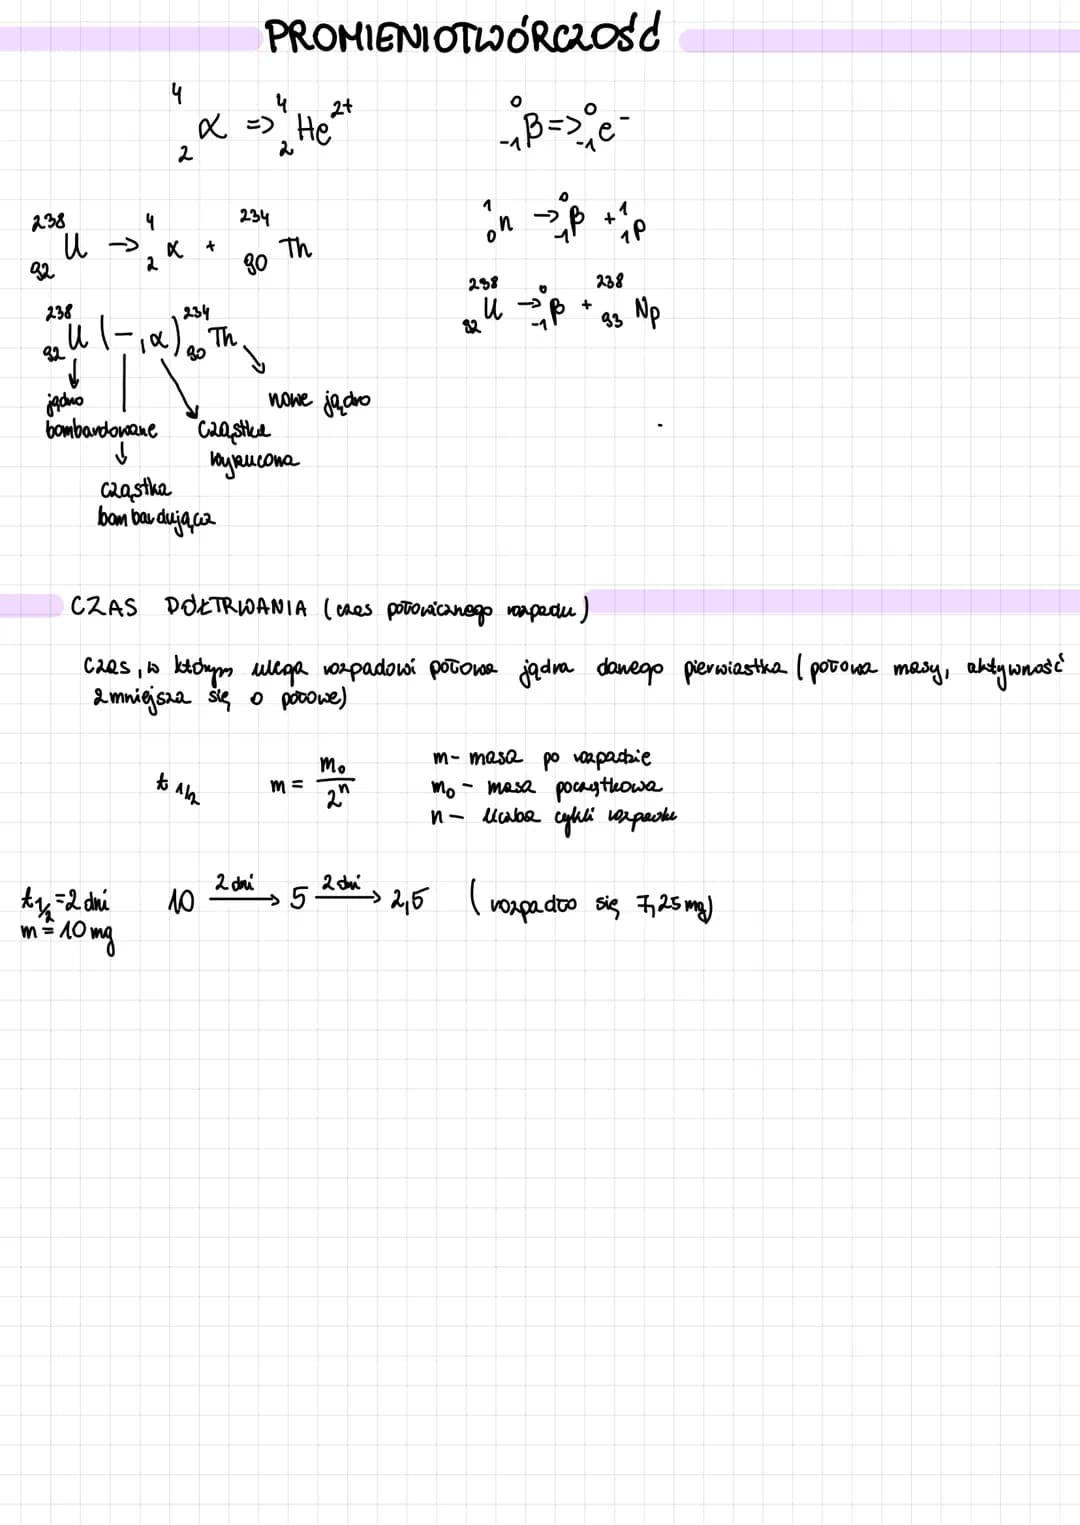 PROMIENIOTWÓRCZOŚĆ
⁴₂α => ⁴₂He²⁺
⁰₋₁β => ⁰₋₁e⁻
²³⁸₉₂U → ⁴₂α + ²³⁴₉₀Th
¹₀n → ⁰₋₁β + ¹₁p
²³⁸₉₂U → ⁰₋₁β + ²³⁸₉₃Np
²³⁸₉₂U (-, α) ²³⁴₉₀Th
jądro
bombardowane
cząstka
bombardująca
cząstka
wyrzucona
nowe jądro
CZAS POŁTRWANIA (czas połowicznego rozpadu)
Czas, w którym ulega rozpadowi połowa jądra danego pierwiastka (połowa masy, aktywność
zmniejsza się o połowe)
t 1/2
m = m₀/2ⁿ
m - masa po rozpadzie
m₀ - masa początkowa
n - liczba cykli rozpadu
t1/2 = 2 dni
m = 10 mg
10 2 dni → 5 2 dni → 2,5 (rozpadło się 7,25 mg)